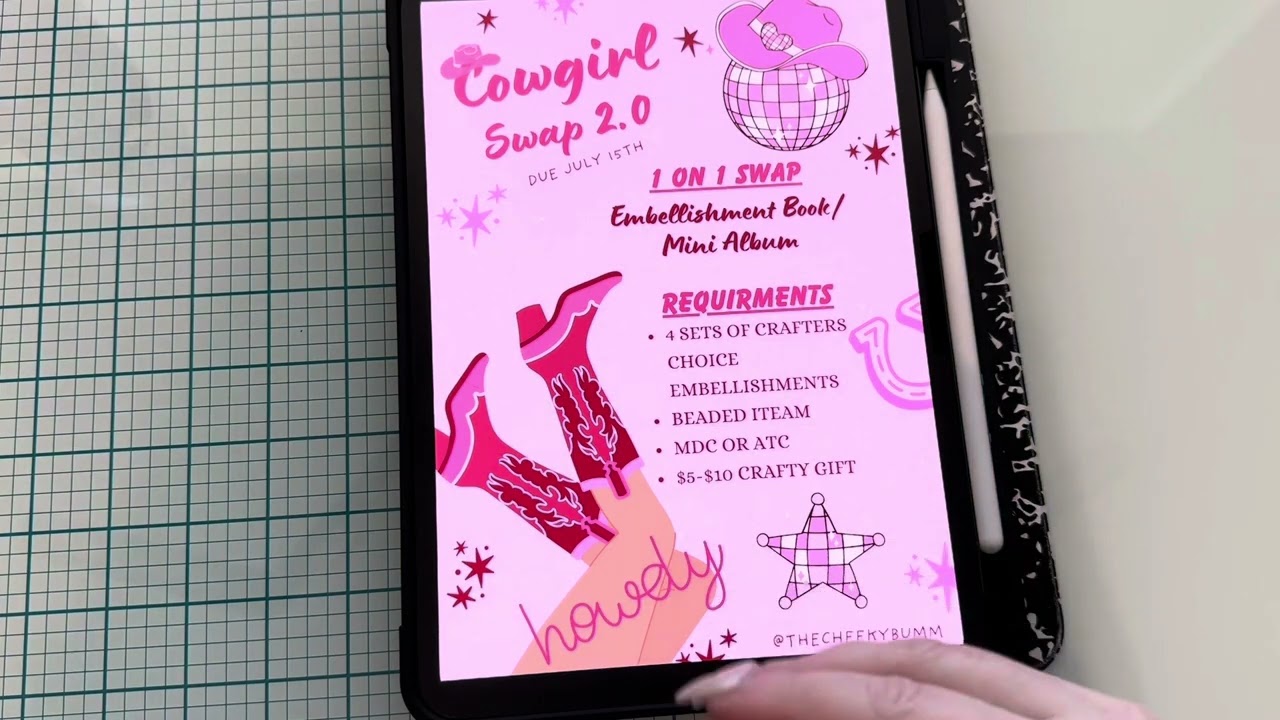 Cowgirl
Swap 2.0
DUE JULY 15TH
1 ON 1 SWAP
Embellishment Book/
Mini Album
REQUIRMENTS
• 4 SETS OF CRAFTERS
CHOICE
EMBELLISHMENTS
• BEADED ITEAM
• MDC OR ATC
• $5-$10 CRAFTY GIFT
howdy
@THECHEEKYBUMM